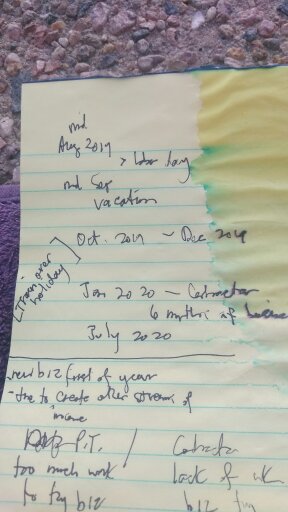 mid
Aug 2019
> labor day
mid Sep
vacation
Oct. 2019 ~ Dec 2019
[Train over
holiday]
Jan 2020 — Contractor
6 months of
July 2020
new biz first of year
- due to create other stream of
income
P.T. / Contractor
too much work lack of wk
to try biz biz